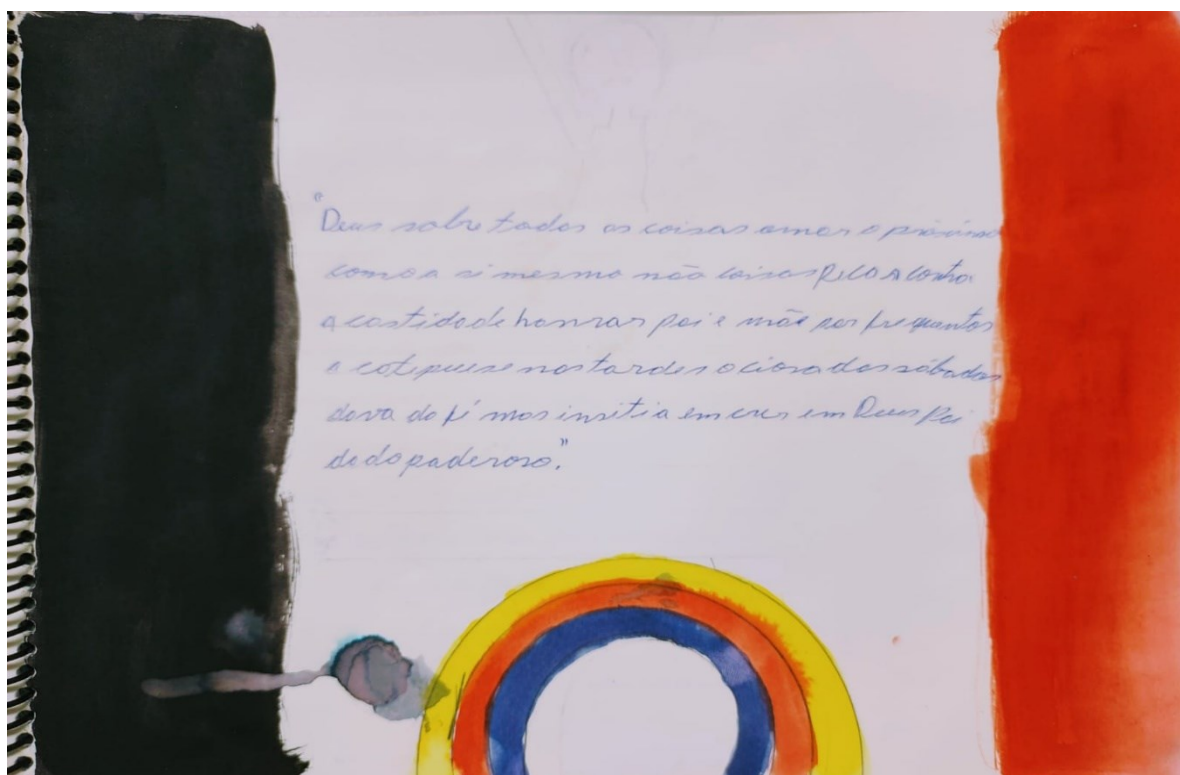 "Deus sobre todas as coisas amar o próximo
como a si mesmo não coisas PECA contra
a castidade honrar pai e mãe por frequentar
a catequese nas tardes ociosa dos sábados
dava do fé mas insitia em crer em Deus Pai
dodo poderoso."